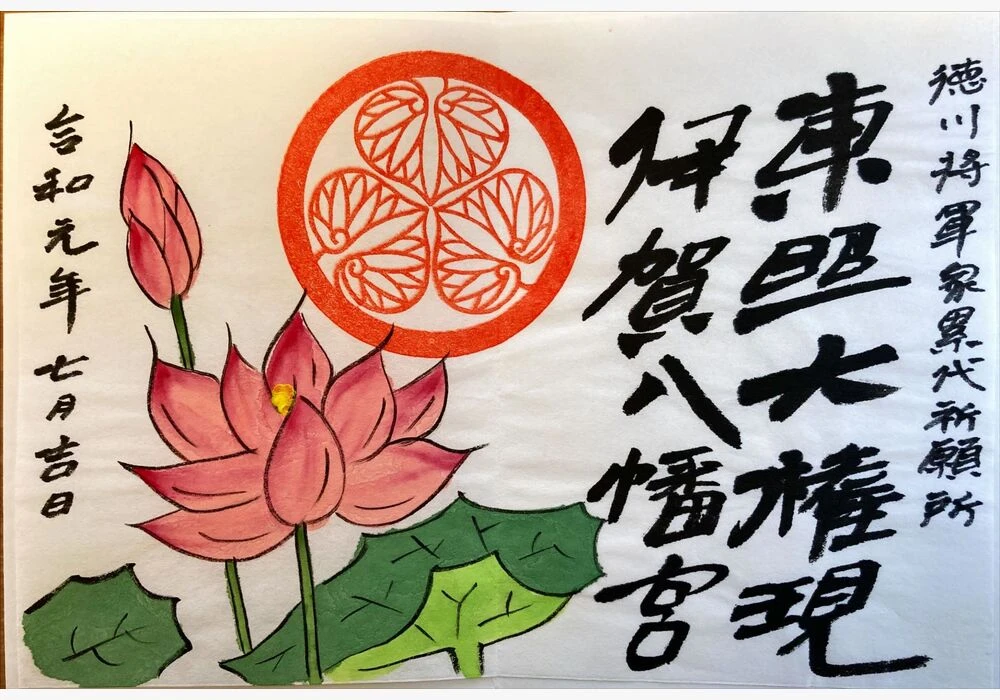 徳川将軍家累代祈願所
東照大権現
伊賀八幡宮
令和元年七月吉日